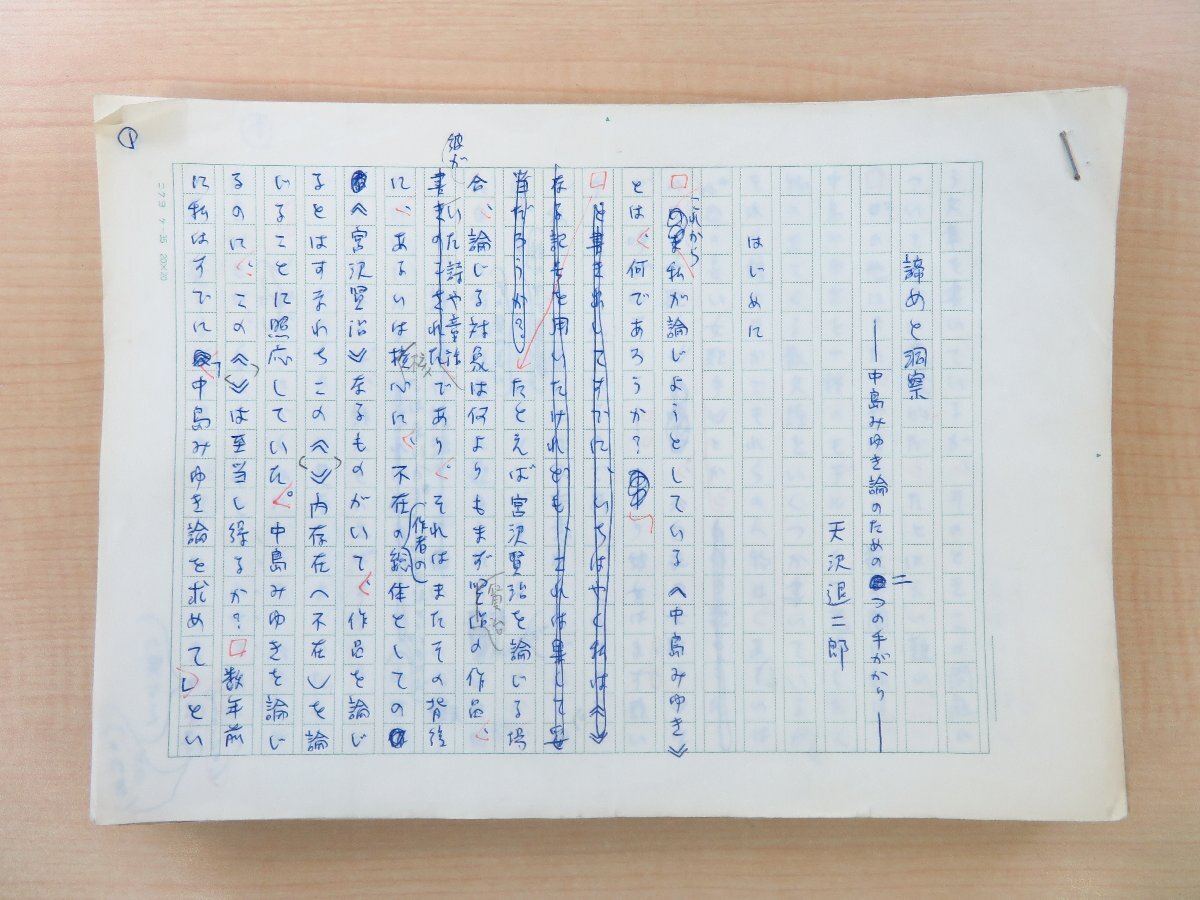 諦めと洞察
――中島みゆき論のための二つの手がかり――
天沢退二郎
はじめに
これから私が論じようとしている《中島みゆき》
とは、何であろうか？
と書き出してすかに、いちはやく私は《》
なる記号を用いたけれども、これは果して妥
当だろうか？たとえば宮沢賢治を論じる場
合、論じる対象は何よりもまず賢治の作品、
彼が書いた詩や童話であり、それはまたその背後
に、あるいは核心に、不在の作者の総体としての
《宮沢賢治》なるものがいて、作品を論じ
るとはすなわちこの《》内存在＜不在＞を論
じることに照応していた。中島みゆきを論じ
るのに、この《》は至当し得るか？数年前
に私はすでに「中島みゆき論を求めて」とい
①
コクヨ ケ-35 20×20